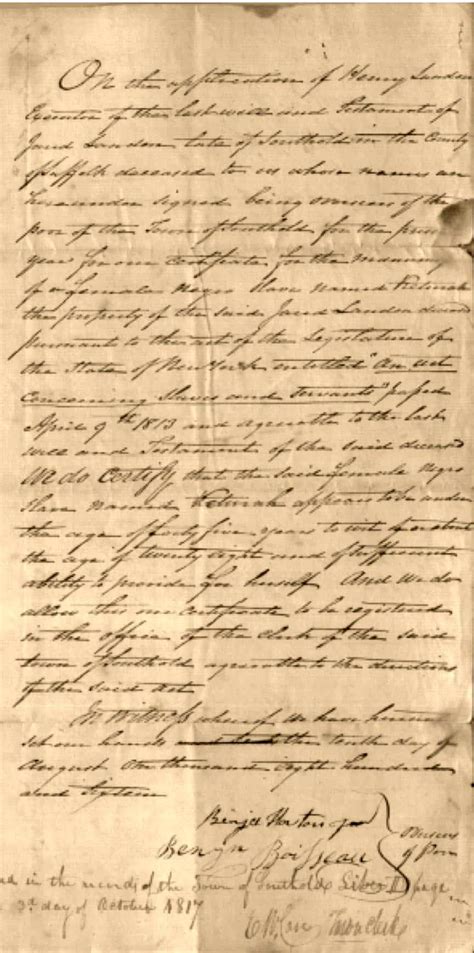 On the application of Henry Landon
Executor of the last will and Testament of
Jared Landon late of Southold in the County
of Suffolk deceased to us whose names are
hereunder signed being overseers of the
poor of the Town of Southold for the present
year for our certificate for the manumi
of a Female Negro Slave named Keturah
the property of the said Jared Landon deceased
pursuant to the act of the Legislature of
the State of New York entitled "An act
concerning Slaves and Servants" passed
April 9th 1813 and agreeable to the last
will and Testament of the said deceased
We do certify that the said Female Negro
Slave named Keturah appears to be under
the age of forty five years to wit of about
the age of twenty eight and of sufficient
ability to provide for herself And we do
allow this our certificate to be registered
in the office of the clerk of the said
town of Southold agreeable to the directions
of the said Act
In Witness whereof we have hereunto
set our hands the tenth day of
August One thousand eight hundred
and sixteen
Benja Horton
Overseers
Benjn Boisseau
of Poor
in the records of the Town of Southold Liber page
3rd day of October 1817
Town clerk